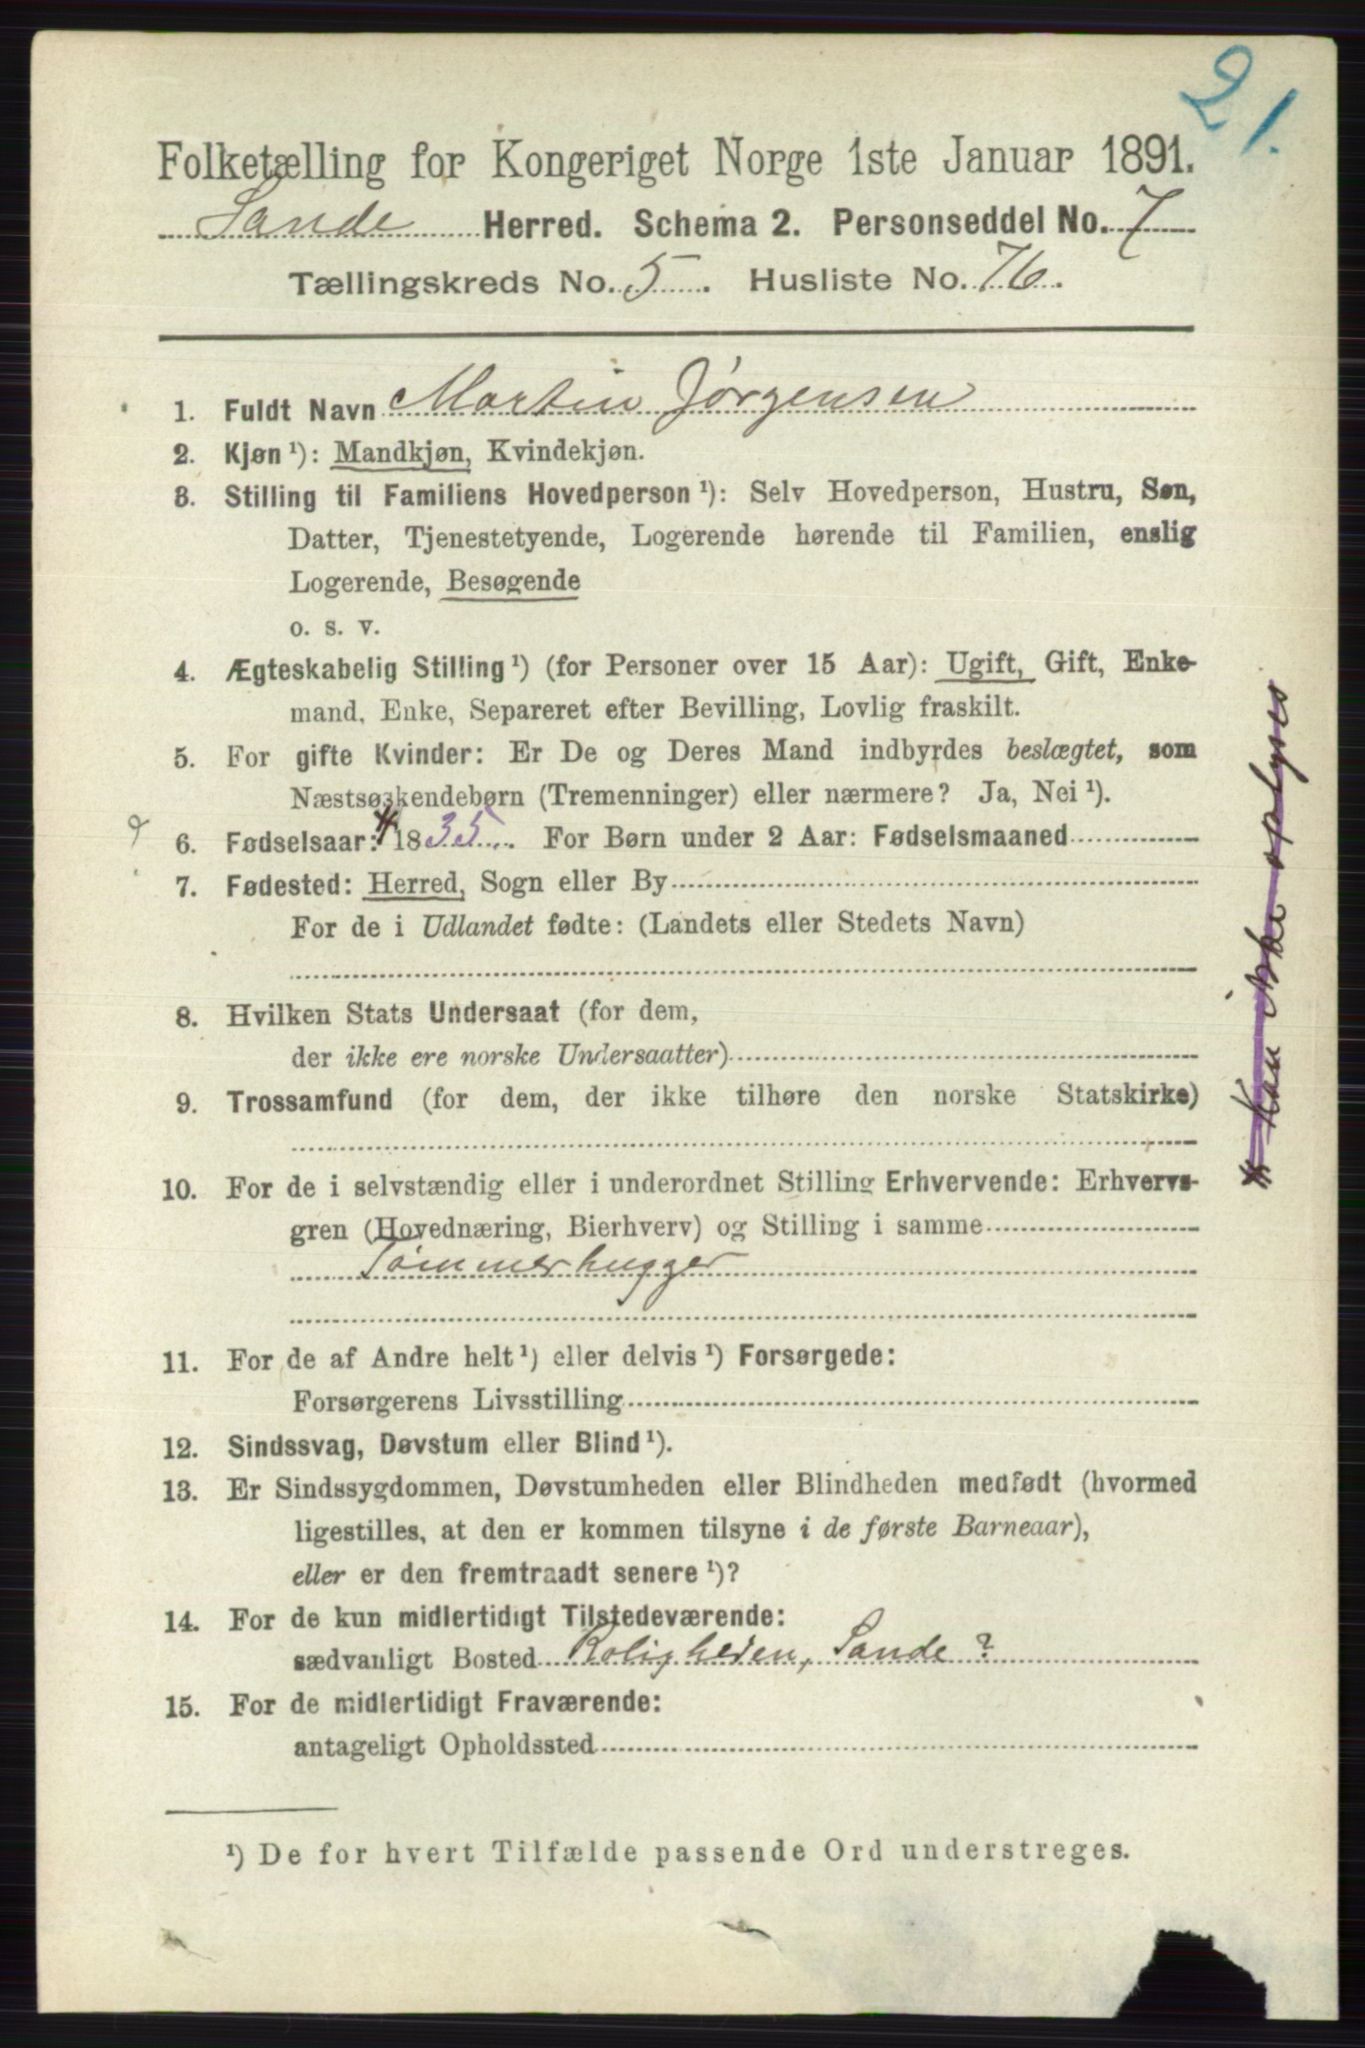 21.
Folketælling for Kongeriget Norge 1ste Januar 1891.
Sande Herred. Schema 2. Personseddel No. 7
Tællingskreds No. 5. Husliste No. 76.
1. Fuldt Navn Martin Jørgensen
2. Kjøn ¹): Mandkjøn, Kvindekjøn.
3. Stilling til Familiens Hovedperson ¹): Selv Hovedperson, Hustru, Søn,
Datter, Tjenestetyende, Logerende hørende til Familien, enslig
Logerende, Besøgende
o. s. v.
4. Ægteskabelig Stilling ¹) (for Personer over 15 Aar): Ugift, Gift, Enke-
mand, Enke, Separeret efter Bevilling, Lovlig fraskilt.
5. For gifte Kvinder: Er De og Deres Mand indbyrdes beslægtet, som
Næstsøskendebørn (Tremenninger) eller nærmere? Ja, Nei ¹).
? 6. Fødselsaar: * 1835. For Børn under 2 Aar: Fødselsmaaned
7. Fødested: Herred, Sogn eller By
For de i Udlandet fødte: (Landets eller Stedets Navn)
8. Hvilken Stats Undersaat (for dem,
der ikke ere norske Undersaatter)
9. Trossamfund (for dem, der ikke tilhøre den norske Statskirke)
10. For de i selvstændig eller i underordnet Stilling Erhvervende: Erhvervs-
gren (Hovednæring, Bierhverv) og Stilling i samme
Tømmerhugger
11. For de af Andre helt ¹) eller delvis ¹) Forsørgede:
Forsørgerens Livsstilling
12. Sindssvag, Døvstum eller Blind ¹).
13. Er Sindssygdommen, Døvstumheden eller Blindheden medfødt (hvormed
ligestilles, at den er kommen tilsyne i de første Barneaar),
eller er den fremtraadt senere ¹)?
14. For de kun midlertidigt Tilstedeværende:
sædvanligt Bosted Roligheden, Sande?
15. For de midlertidigt Fraværende:
antageligt Opholdssted
¹) De for hvert Tilfælde passende Ord understreges.
* Kan ikke oplyses